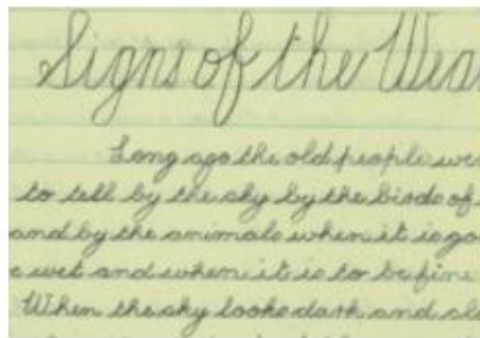 Signs of the Wea
Long ago the old people wer
to tell by the sky by the birds of
and by the animals when it is go
e wet and when it is to be fine
When the sky looks dark and clo